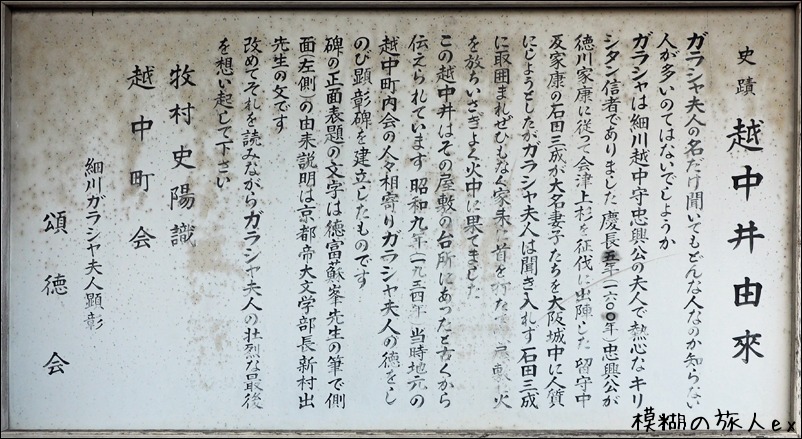 史蹟 越中井由来
ガラシャ夫人の名だけ聞いてもどんな人なのか知らない
人が多いのではないでしようか
ガラシャは細川越中守忠興公の夫人で熱心なキリ
シタン信者でありました 慶長五年(一六〇〇年)忠興公が
徳川家康に従つて会津上杉を征伐に出陣した 留守中
反家康の石田三成が大名妻子たちを大阪城中に人質
にしようとしたがガラシャ夫人は聞き入れず石田三成
に取囲まれぜひもなく家来に首を打たせ 屋敷に火
を放ちいさぎよく火中に果てました
この越中井はその屋敷の台所にあつたと古くから
伝えられています 昭和九年(一九三四年)当時地元の
越中町内会の人々相寄りガラシャ夫人の徳をし
のび顕彰碑を建立したものです
碑の正面表題の文字は徳富蘇峯先生の筆で側
面(左側)の由来説明は京都帝大文学部長新村出
先生の文です
改めてそれを読みながらガラシャ夫人の壮烈な最後
を想い起して下さい
牧村史陽識
越中町会
細川ガラシャ夫人顕彰
頌徳会
模糊の旅人ex